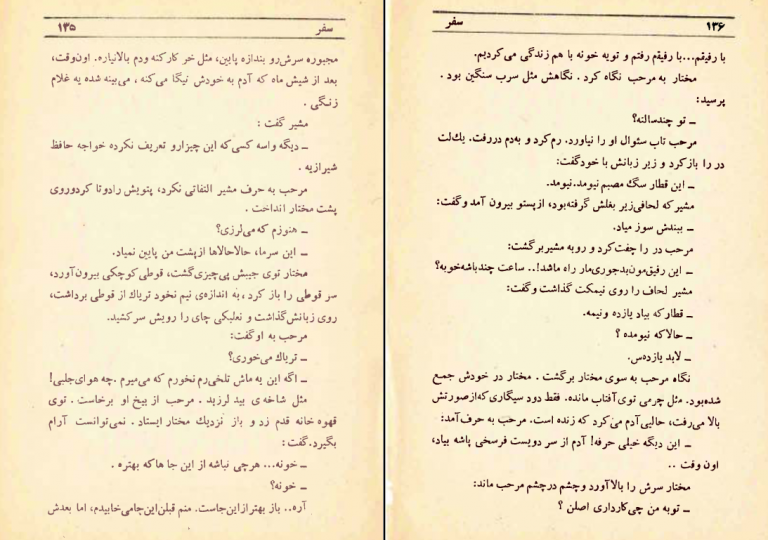 سفر ۱۳۵
مجبوره سرش‌رو بندازه پایین، مثل خر کار کنه ودم بالانیاره. اون‌وقت،
بعد از شیش ماه که آدم به خودش نیگا می‌کنه ، می‌بینه شده یه غلام
زنگی .
مشیر گفت :
ـ دیگه واسه کسی‌که این چیزارو تعریف نکرده خواجه حافظ
شیرازیه .
مرحب به حرف مشیر التفاتی نکرد، پتویش رادوتا کردوروی
پشت مختار انداخت .
ـ هنوزم که می‌لرزی؟
ـ این سرما، حالاحالاها از پشت من پایین نمیاد.
مختار توی جیبش پی‌چیزی‌گشت، قوطی کوچکی بیرون‌آورد،
سر قوطی را باز کرد ، به اندازه‌ی نیم نخود تریاك از قوطی برداشت،
روی زبانش‌گذاشت و نعلبکی چای را رویش سرکشید.
مرحب به او گفت:
ـ تریاك می‌خوری؟
ـ اگه این یه ماش تلخی‌رم نخورم که می‌میرم .چه هوای‌جلبی!
مثل شاخه‌ی بید لرزید . مرحب از بیخ او برخاست . توی
قهوه خانه قدم زد و باز نزدیك مختار ایستاد . نمی‌توانست آرام
بگیرد.گفت:
ـ خونه... هرچی نباشه از این جا ها که بهتره .
ـ خونه؟
آره.. باز بهتر از این‌جاست. منم قبلن‌این‌جامی‌خابیدم، اما بعدش
۱۳۶ سفر
با رفیقم...با رفیقم رفتم و تویه خونه با هم زندگی می‌کردیم.
مختار به مرحب نگاه کرد . نگاهش مثل سرب سنگین بود .
پرسید:
ـ تو چندسالته؟
مرحب تاب سئوال او را نیاورد. رم کرد و به‌دم دررفت. یك‌لت
در را باز کرد و زیر زبانش با خودگفت:
ـ این قطار سگ مصبم نیومد.نیومد.
مشیرکه لحافی‌زیر بغلش گرفته‌بود، ازپستو بیرون آمد وگفت:
ـ ببندش سوز میاد.
مرحب در را چفت‌کرد و روبه مشیربرگشت:
ـ این رفیق‌مون‌بدجوری‌مار راه ماشد!.. ساعت چندباشه‌خوبه؟
مشیر لحاف را روی نیمکت گذاشت وگفت:
ـ قطارکه بیاد یازده ونیمه.
ـ حالاکه نیومده ؟
ـ لابد یازده‌س.
نگاه مرحب به سوی مختار برگشت . مختار در خودش جمع
شده‌بود. مثل چرمی توی‌آفتاب مانده. فقط دود سیگاری که‌ازصورتش
بالا می‌رفت، حالیی‌آدم می‌کرد که زنده است. مرحب به حرف‌آمد:
ـ این دیگه خیلی حرفه! آدم از سر دویست فرسخی پاشه بیاد،
اون وقت ..
مختار سرش را بالاآورد وچشم درچشم مرحب ماند:
ـ توبه من چی‌کارداری اصلن ؟